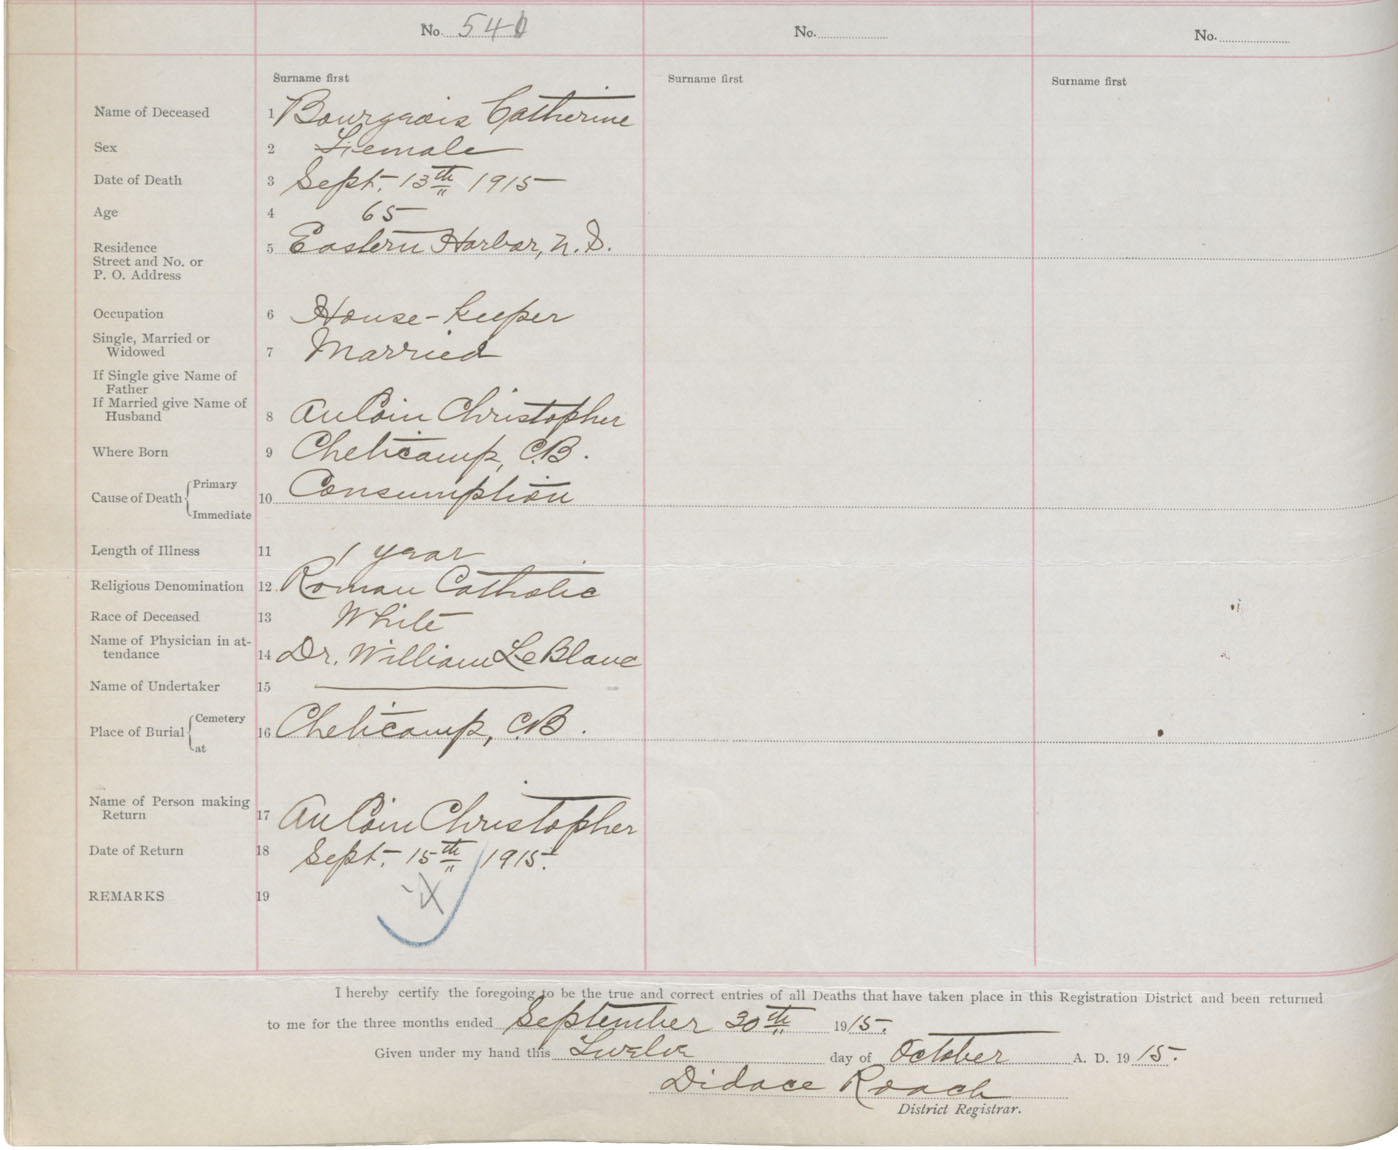 No. 541
No.
No.
Surname first
Surname first
Surname first
Name of Deceased 1 Bourgeois Catherine
Sex 2 Female
Date of Death 3 Sept. 13th 1915
Age 4 65
Residence 5 Eastern Harbor, N. S.
Street and No. or
P. O. Address
Occupation 6 House-keeper
Single, Married or
Widowed 7 Married
If Single give Name of
Father
If Married give Name of
Husband 8 AuCoin Christopher
Where Born 9 Cheticamp, C.B.
Cause of Death Primary 10 Consumption
Immediate
Length of Illness 11 1 year
Religious Denomination 12 Roman Catholic
Race of Deceased 13 White
Name of Physician in at-
tendance 14 Dr. William LeBlanc
Name of Undertaker 15
Place of Burial Cemetery 16 Cheticamp, C.B.
at
Name of Person making
Return 17 AuCoin Christopher
Date of Return 18 Sept. 15th 1915.
REMARKS 19
I hereby certify the foregoing to be the true and correct entries of all Deaths that have taken place in this Registration District and been returned
to me for the three months ended September 30th 1915.
Given under my hand this Twelve day of October A. D. 1915.
Didace Roach
District Registrar.